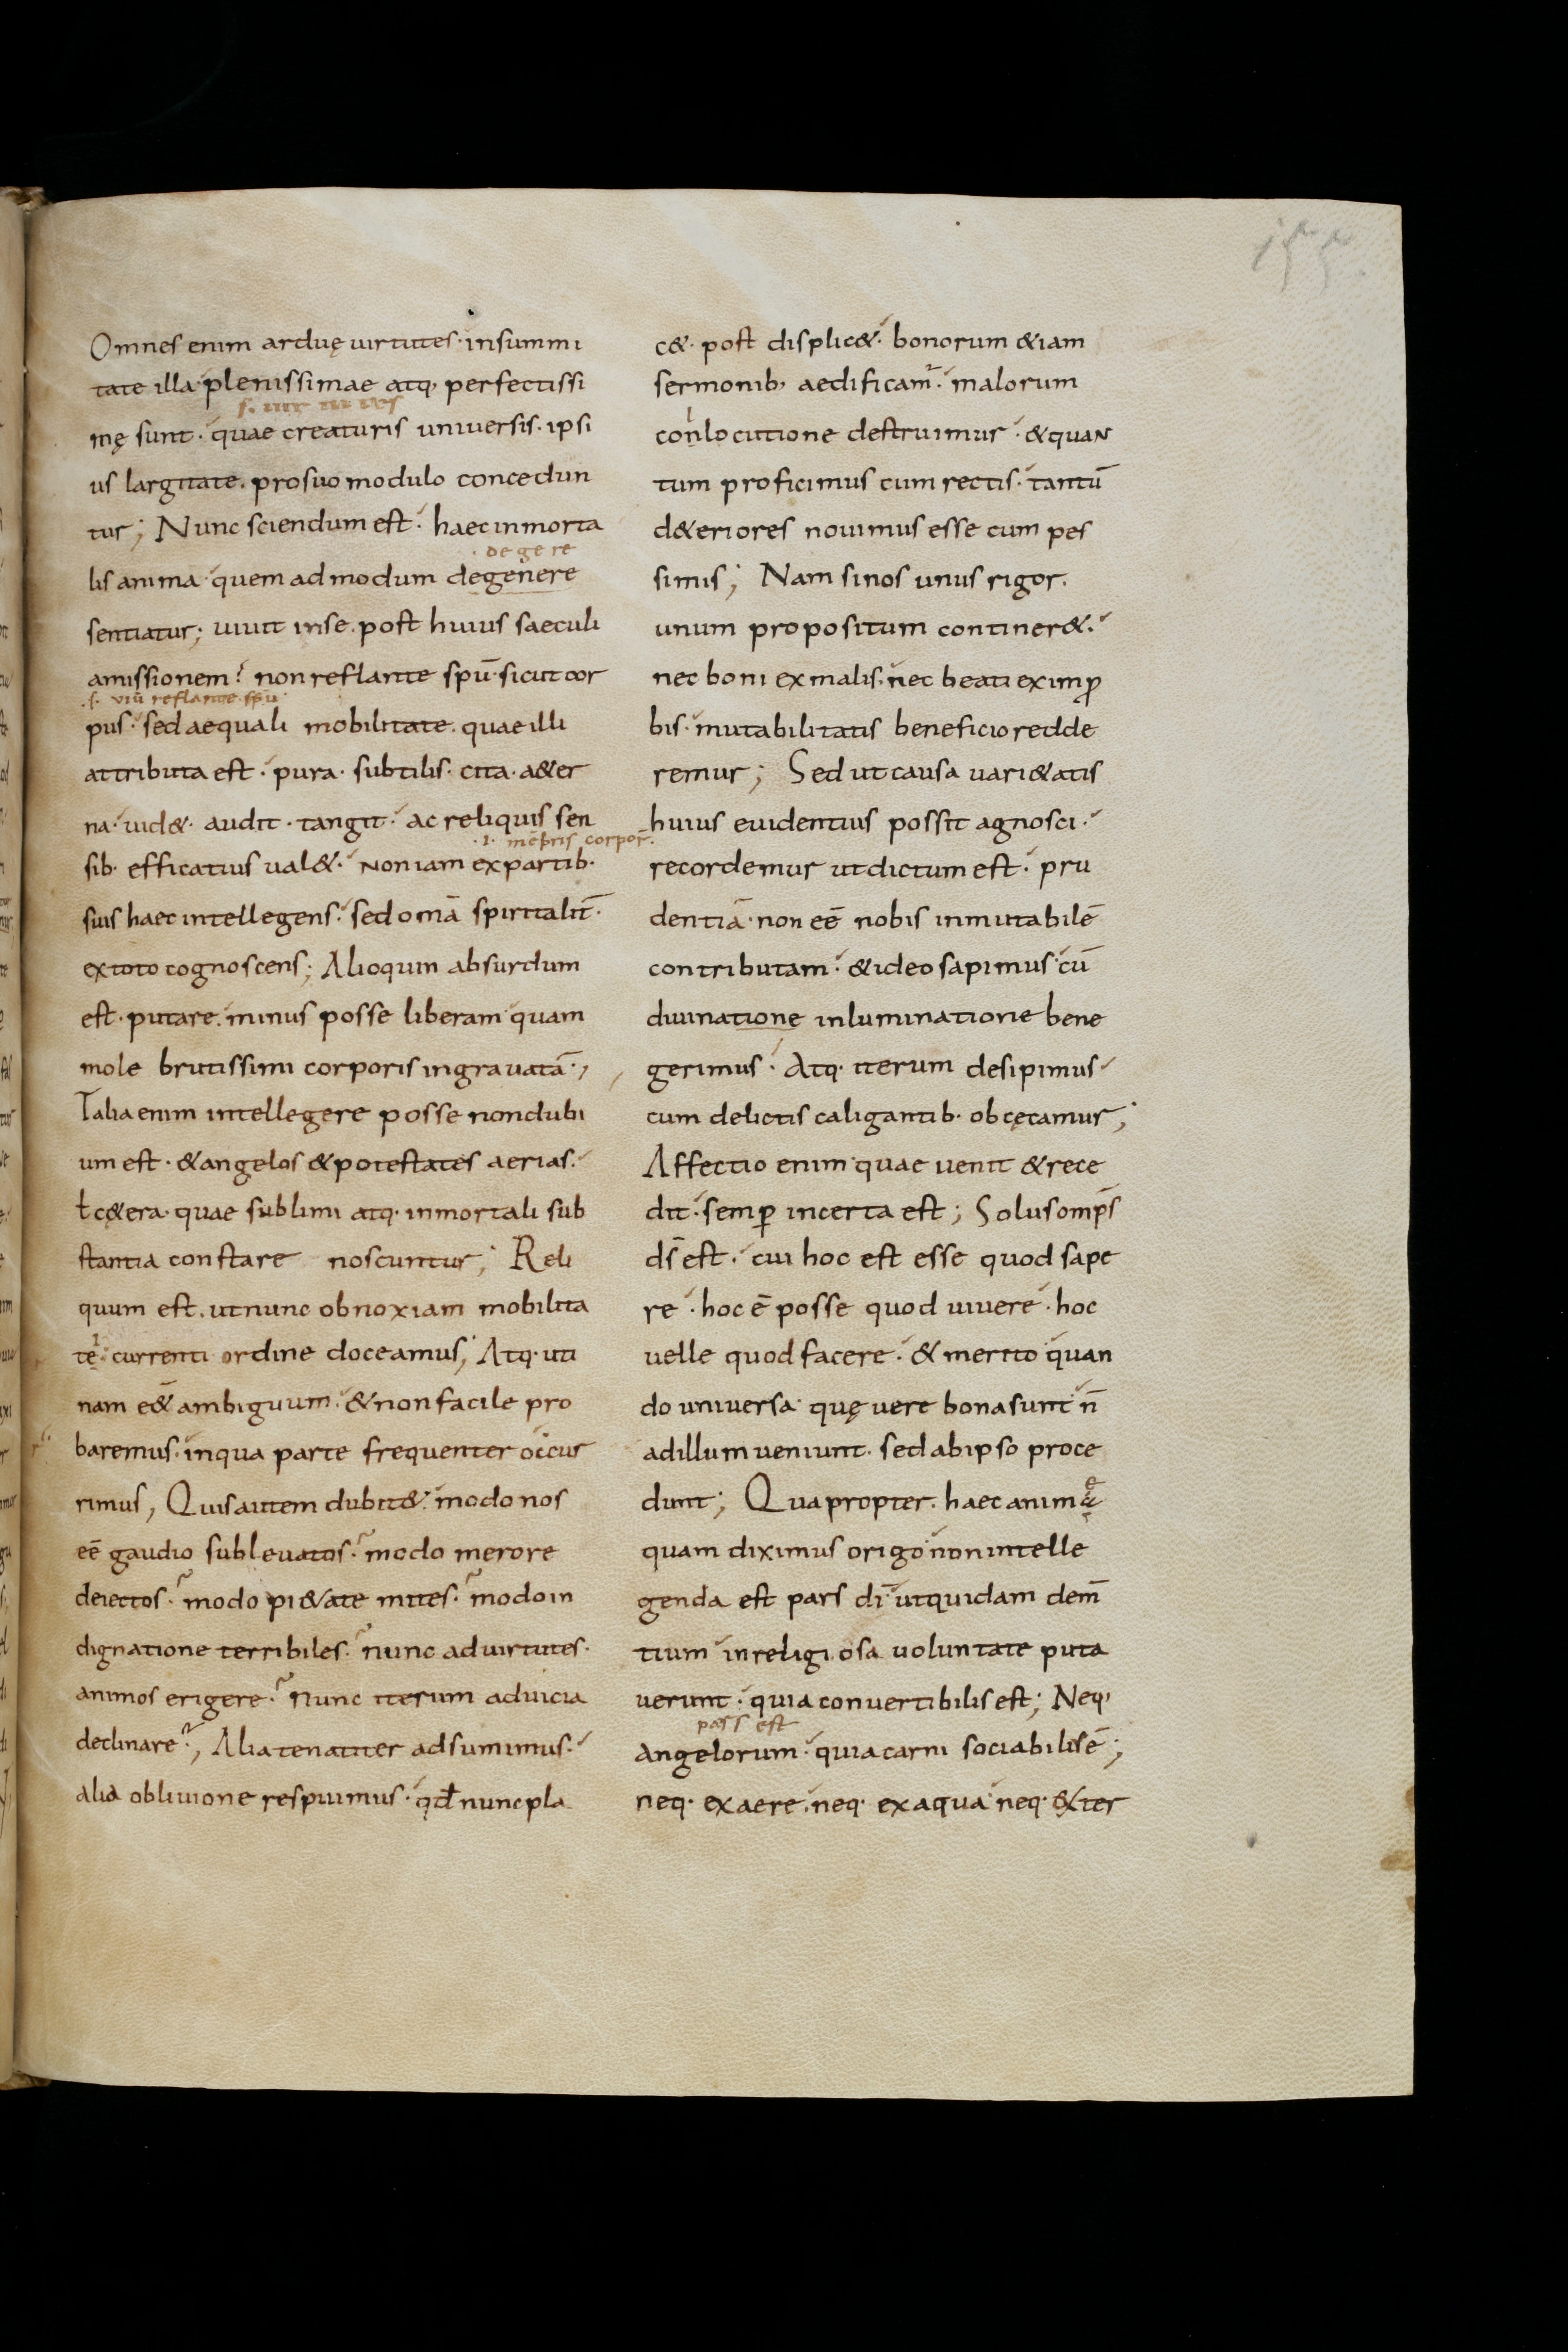 Omnes enim arduę uirtutes· insummi
tate illa· plenissimae atq; perfectissi
mę sunt· quae creaturis uniuersis· ipsi
us largitate· prosuo modulo concedun
tur; Nunc sciendum est· haec inmorta
degere
lis anima· quem ad modum degenere
sentiatur; uiuit inse· post huius saeculi
amissionem? non reflante spū· sicut cor
.s. uiū reflante spū·
pus· sed aequali mobilitate· quae illi
attributa est· pura· subtilis· cita· a&er
na· uid&· audit· tangit· ac reliquis sen
·i· mēbris corpor̄·
sib· efficatius ual&· Non iam ex partib·
suis haec intellegens· sed omā spiritalit̄·
ex toto cognoscens; Alioquin absurdum
est· putare· minus posse liberam· quam
mole brutissimi corporis ingrauatā·;
Talia enim intellegere posse non dubi
um est· & angelos & potestates aerias·
ł cę&era· quae sublimi atq· inmortali sub
stantia constare noscuntur; Reli
quum est· ut nunc obnoxiam mobilita
i
tę· currenti ordine doceamus; Atq· uti
nam e&̄ ambiguum· & non facile pro
baremus· inqua parte frequenter occur
rimus, Quis autem dubit&· modo nos
eē gaudio subleuatos· modo merore
deiectos· modo pi&ate mites· modo in
dignatione terribiles· nunc ad uirtutes·
animos erigere· Nunc iterum ad uicia
declinare·; Alia tenaciter adsumimus·
alia obliuione respuimus· qđ nunc pla
c&· post displic&· bonorum &iam
sermonib; aedificam̃· malorum
l
conlocutione destruimur· & quan
tum proficimus cum rectis· tantū
d&eriores nouimus esse cum pes
simis; Nam si nos unus rigor·
unum propositum continer&·
nec boni ex malis· nec beati ex imꝓ
bis· mutabilitatis beneficio redde
remur; Sed ut causa uari&atis
huius euidentius possit agnosci·
recordemur ut dictum est· pru
dentiā· non eē nobis inmutabilē
contributam· & ideo sapimus· cū
diuinatione inluminatione bene
gerimus· Atq· iterum desipimus
cum delictis caligantib· obcęcamur;
Affectio enim· quae uenit & rece
dit· semꝑ incerta est; Solus omp̄s
ds̄ est· cui hoc est esse quod sape
re· hoc ē posse quod uiuere· hoc
uelle quod facere· & merito· quan
do uniuersa· quę uere bona sunt n̄
ad illum ueniunt· sed ab ipso proce
dunt; Qua propter· haec animę
quam diximus origo· non intelle
genda est pars dī· ut quidam dem̄
tium· inreligiosa uoluntate puta
uerunt· quia conuertibilis est; Neq;
pars est
angelorum· quia carni sociabilis ē;
neq· ex aere· neq· ex aqua· neq· ex ter